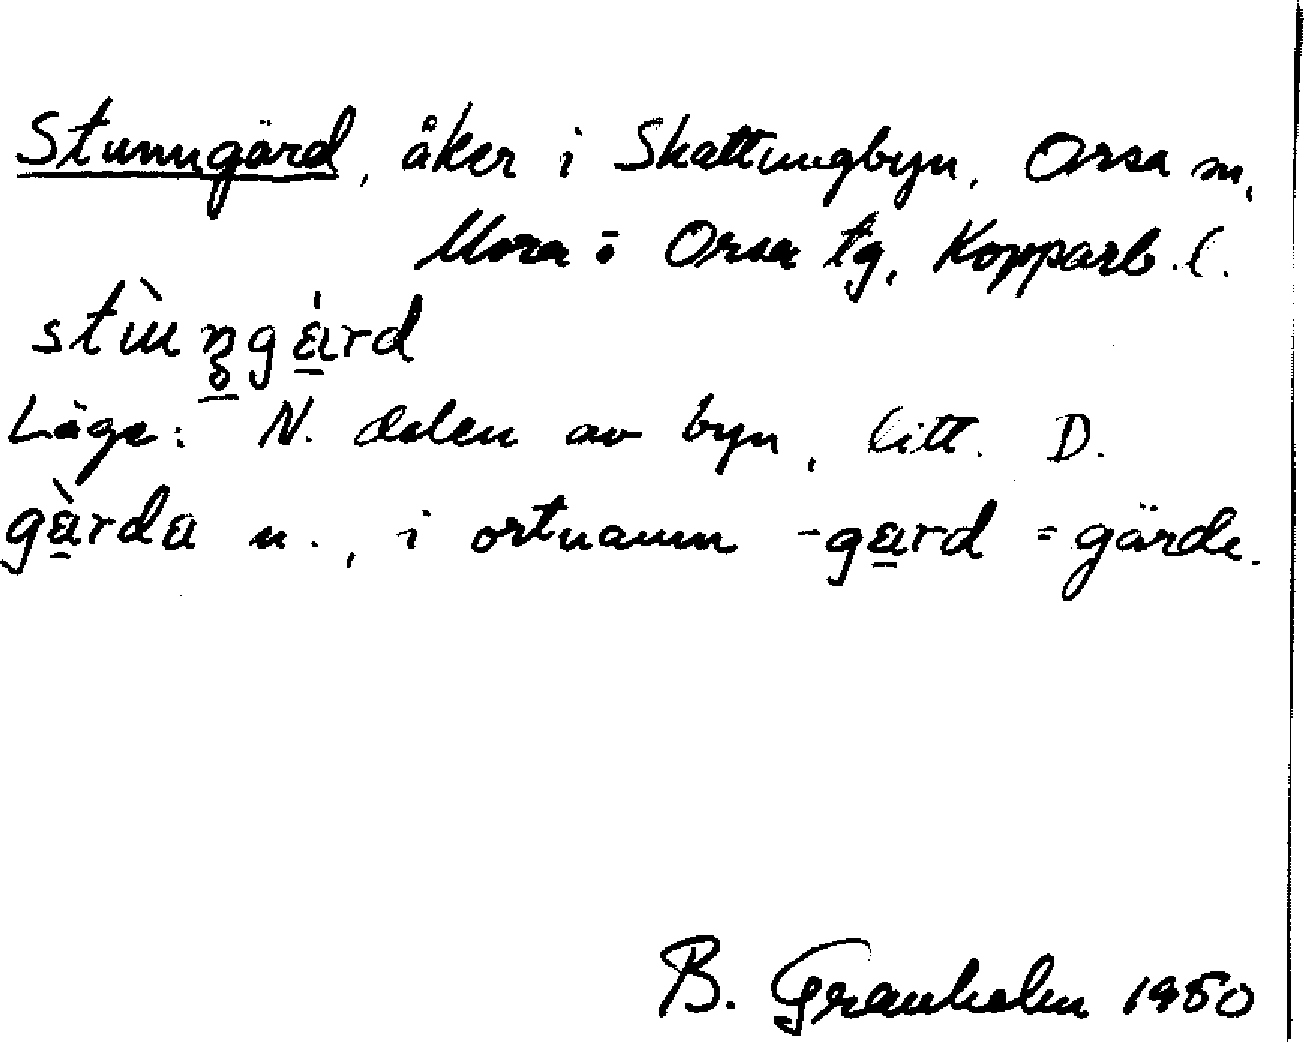 Stunngärd, åker i Skattungbyn, Orsa sn,
Mora o Orsa tg, Kopparb. l.
Läge: N. delen av byn, litt. D.
gàrda n., i ortnamn -gard = gärde.
B. Granholm 1950